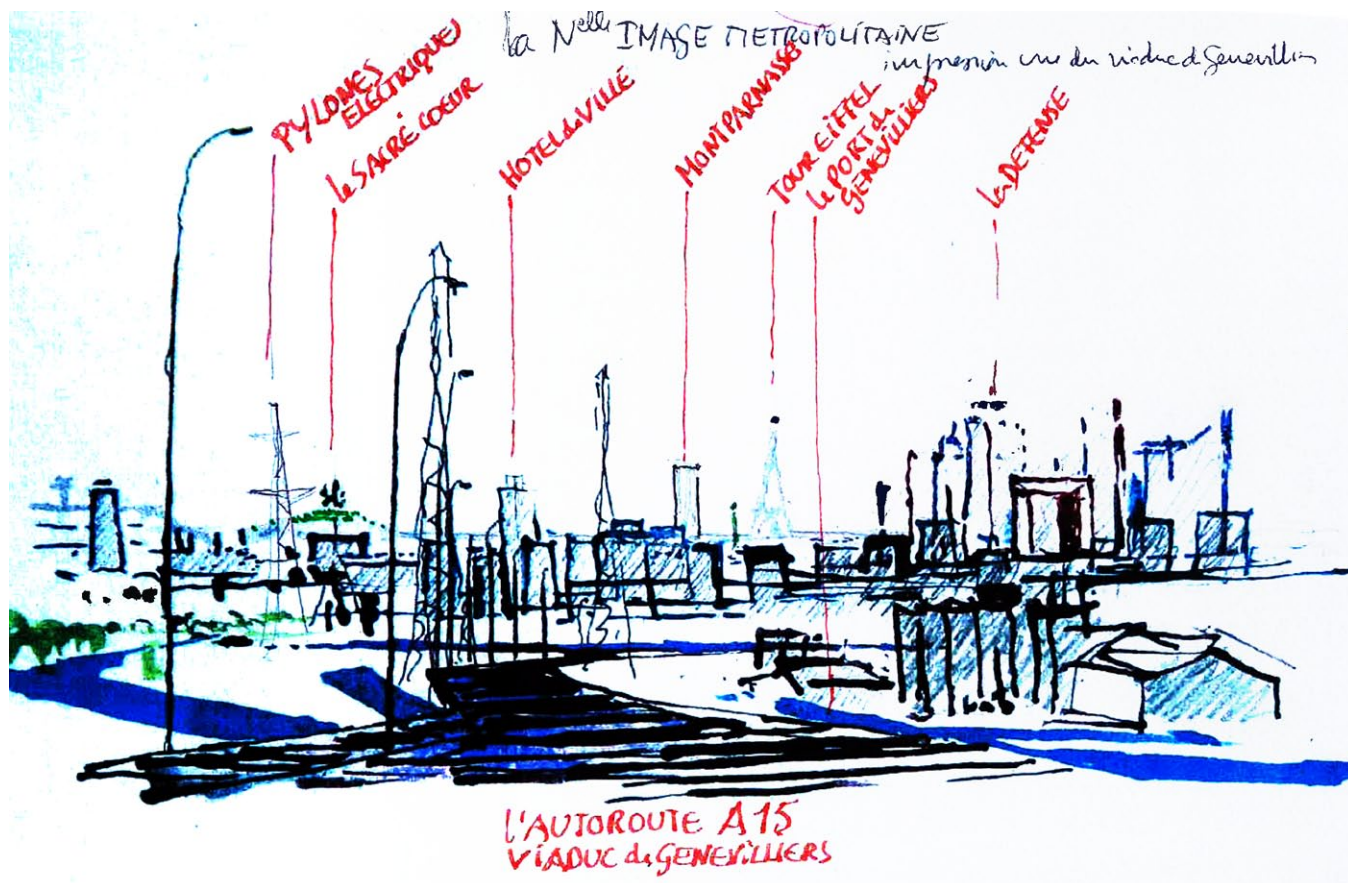 la Nelle IMAGE METROPOLITAINE
impression vue du viaduc d Genevilliers
PYLONES
ELECTRIQUES
le SACRÉ COEUR
HOTEL de VILLE
MONTPARNASSE
TOUR EIFFEL
le PORT de
GENEVILLIERS
la DEFENSE
l'AUTOROUTE A15
VIADUC de GENEVILLIERS